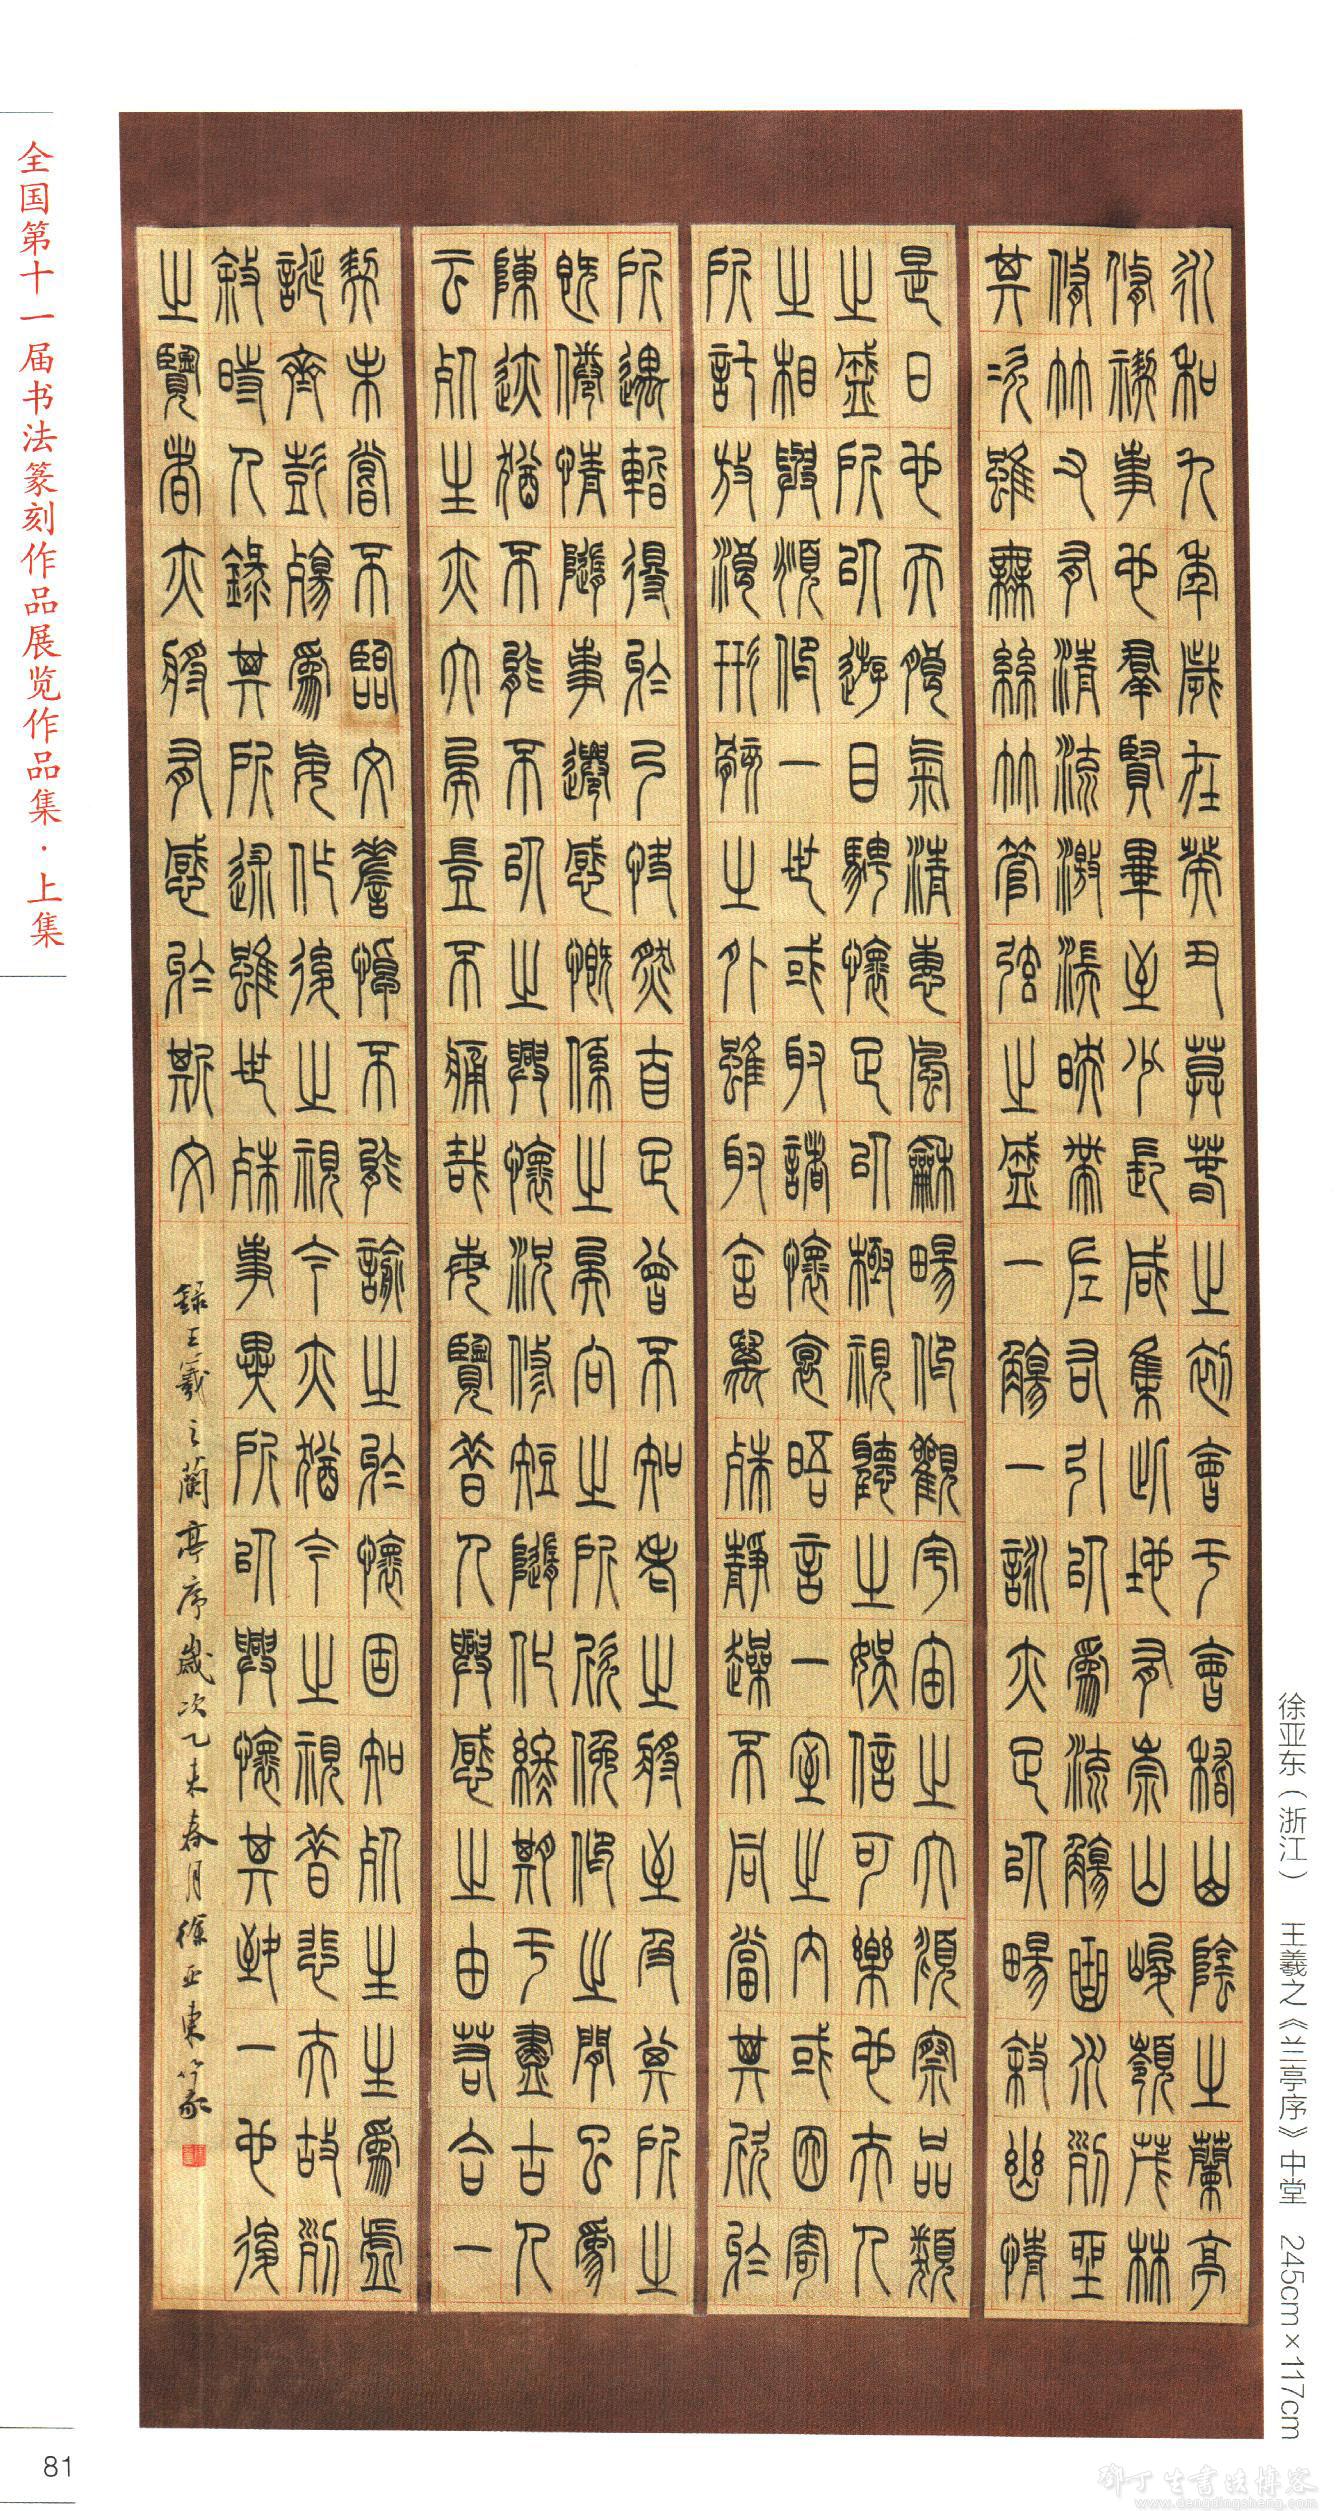 永和九年歲在癸丑莫春之初會于會稽山陰之蘭亭
脩禊事也羣賢畢至少長咸集此地有崇山峻嶺茂林
脩竹又有清流激湍映帶左右引以為流觴曲水列坐
其次雖無絲竹管弦之盛一觴一詠亦足以暢敘幽情
是日也天朗氣清惠風龢暢仰觀宇宙之大俯察品類
之盛所以遊目騁懷足以極視聽之娛信可樂也夫人
之相與俯仰一世或取諸懷裦晤言一室之內或因寄
所託放浪形骸之外雖取舍萬殊靜躁不同當其欣於
所遇蹔得於己快然自足曾不知老之將至及其所之
既倦情隨事遷感慨係之矣向之所欣俛仰之閒已為
陳迹猶不能不以之興懷況脩短隨化終期于盡古人
云死生亦大矣豈不痛哉每覽昔人興感之由若合一
契未嘗不臨文嗟悼不能喻之於懷固知死生生為虛
誕齊彭殤為妄作後之視今亦猶今之視昔悲夫故列
敘時人錄其所述雖世殊事異所以興懷其致一也後
之覽者亦將有感於斯文
録王羲之蘭亭序歲次乙未春月徐亚東篆
徐亚东（浙江） 王羲之《兰亭序》中堂 245cm×117cm
全国第十一届书法篆刻作品展览作品集·上集
81
鄧丁生書法博客
www.dengdingsheng.com